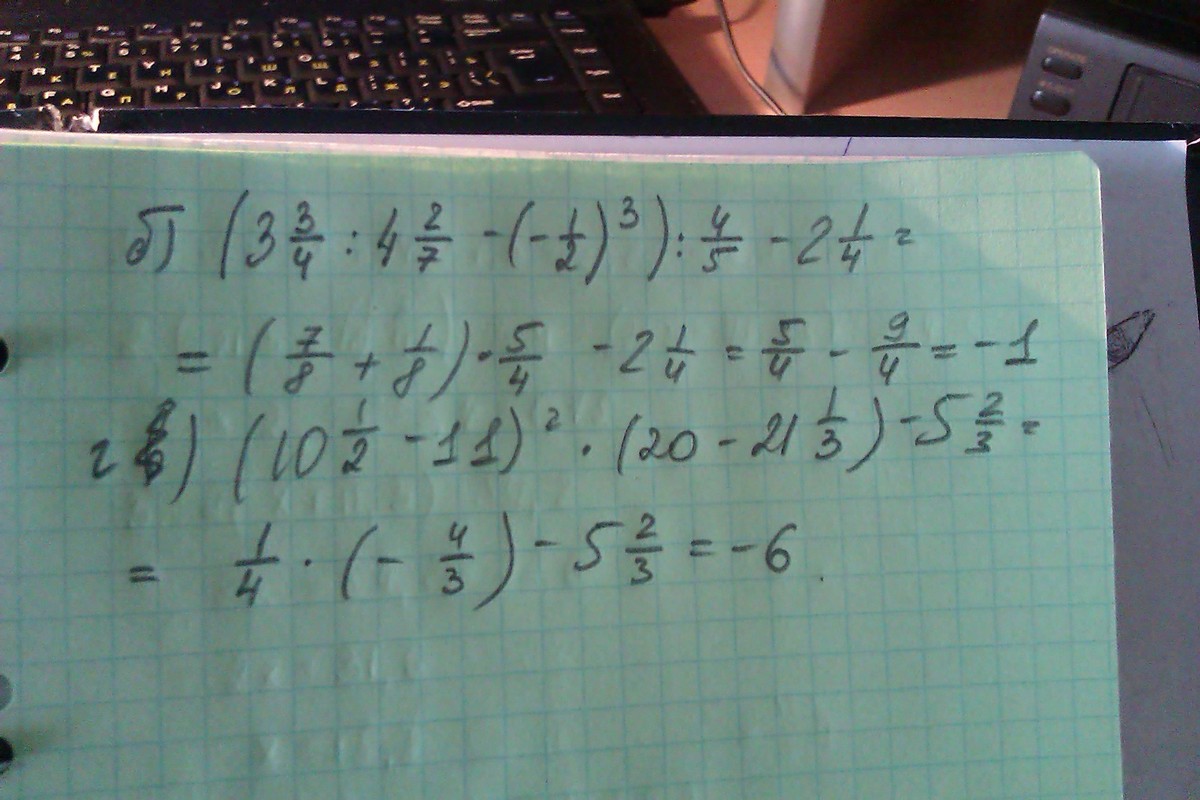 б) (3 3/4 : 4 2/7 - (-1/2)^3) : 4/5 - 2 1/4 =
= (7/8 + 1/8) · 5/4 - 2 1/4 = 5/4 - 9/4 = -1
г) (10 1/2 - 11)^2 · (20 - 21 1/3) - 5 2/3 =
= 1/4 · (- 4/3) - 5 2/3 = -6